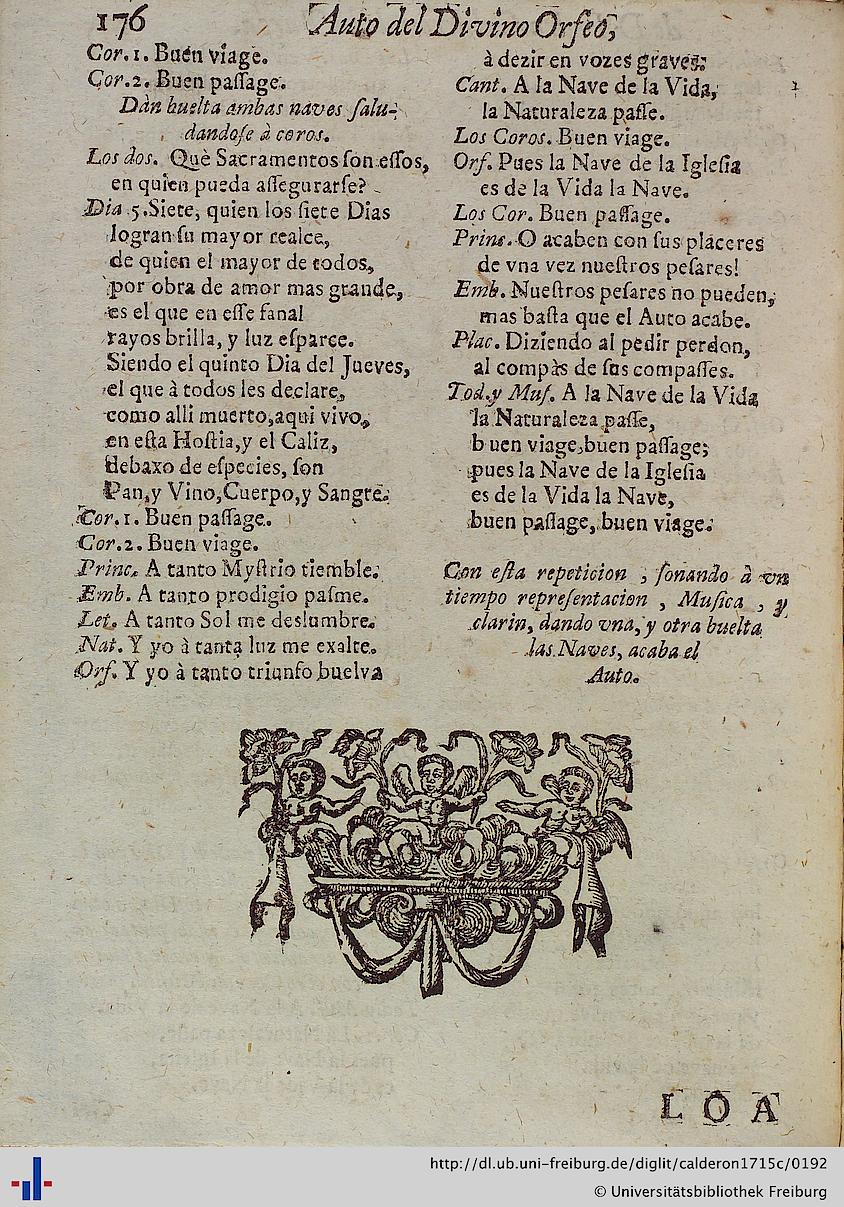 176 Auto del Divino Orfeo,
Cor. 1. Buen viage.
Cor. 2. Buen passage.
Dàn buelta ambas naves salu-
dandose à coros.
Los dos. Què Sacramentos son essos,
en quien pueda assegurarse?
Dia 5. Siete, quien los siete Dias
logran su mayor realce,
de quien el mayor de todos,
por obra de amor mas grande,
es el que en esse fanal
rayos brilla, y luz esparce.
Siendo el quinto Dia del Jueves,
el que à todos les declare,
como alli muerto, aqui vivo,
en esta Hostia, y el Caliz,
debaxo de especies, son
Pan, y Vino, Cuerpo, y Sangre.
Cor. 1. Buen passage.
Cor. 2. Buen viage.
Princ. A tanto Mystrio tiemble.
Emb. A tanto prodigio pasme.
Let. A tanto Sol me deslumbre.
Nat. Y yo à tanta luz me exalte.
Orf. Y yo à tanto triunfo buelva
à dezir en vozes graves:
Cant. A la Nave de la Vida,
la Naturaleza passe.
Los Coros. Buen viage.
Orf. Pues la Nave de la Iglesia
es de la Vida la Nave.
Los Cor. Buen passage.
Princ. O acaben con sus placeres
de vna vez nuestros pesares!
Emb. Nuestros pesares no pueden,
mas basta que el Auto acabe.
Plac. Diziendo al pedir perdon,
al compàs de sus compasses.
Tod. y Mus. A la Nave de la Vida
la Naturaleza passe,
buen viage, buen passage;
pues la Nave de la Iglesia
es de la Vida la Nave,
buen passage, buen viage.
Con esta repeticion, sonando à vn
tiempo representacion, Musica, y
clarin, dando vna, y otra buelta
las Naves, acaba el
Auto.
LOA
http://dl.ub.uni-freiburg.de/diglit/calderon1715c/0192
© Universitätsbibliothek Freiburg